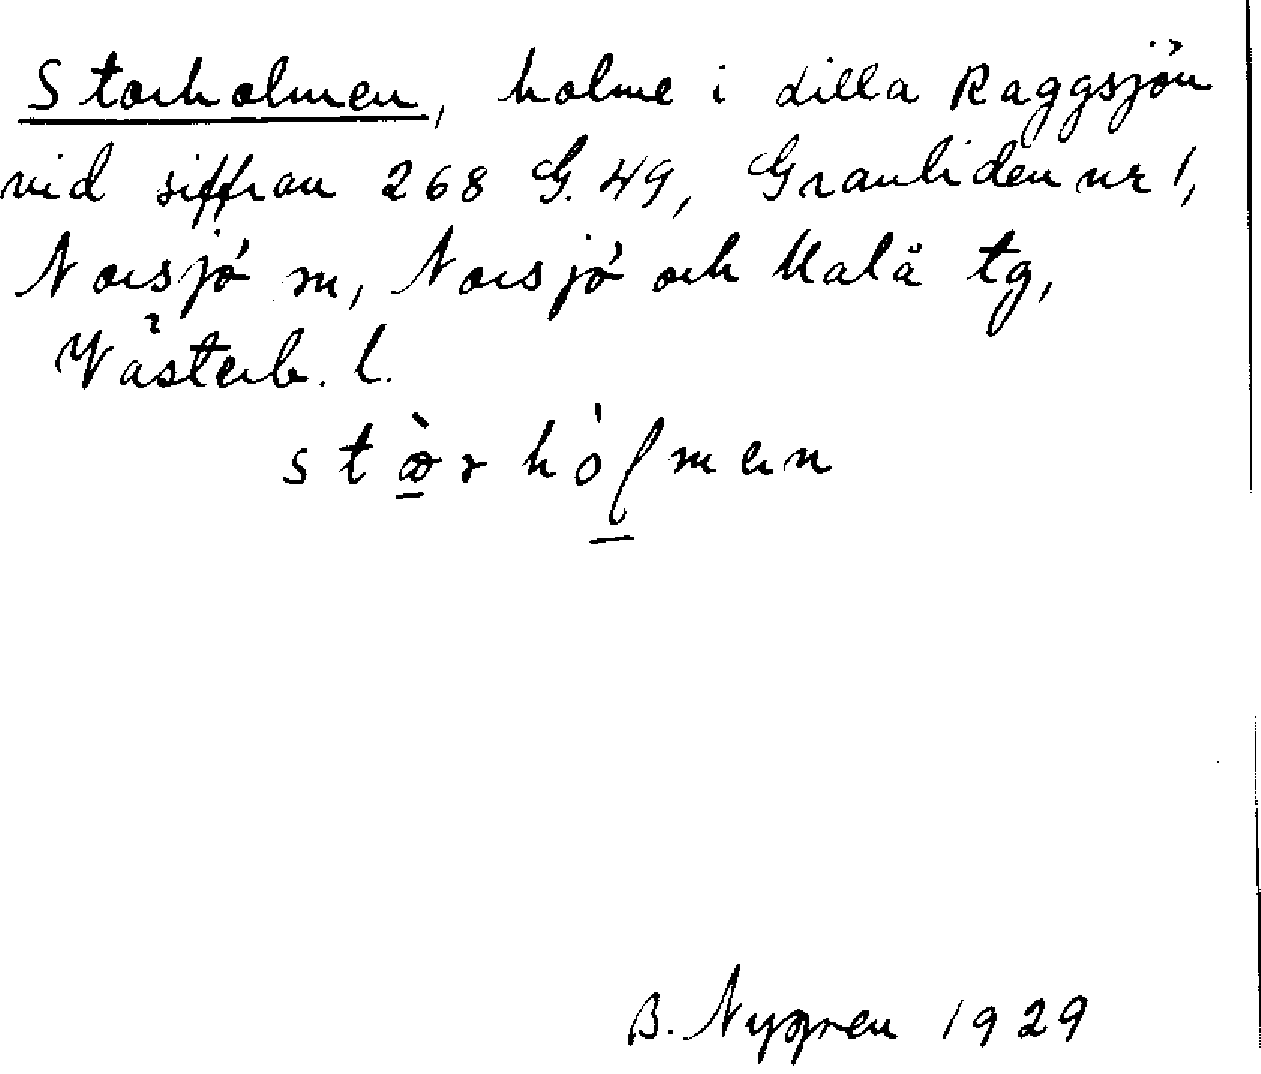 Storholmen, holme i Lilla Raggsjön
vid siffran 268 G. 49, Granliden nr 1,
Norsjö sn, Norsjö och Malå tg,
Västerb. l.
B. Nygren 1929